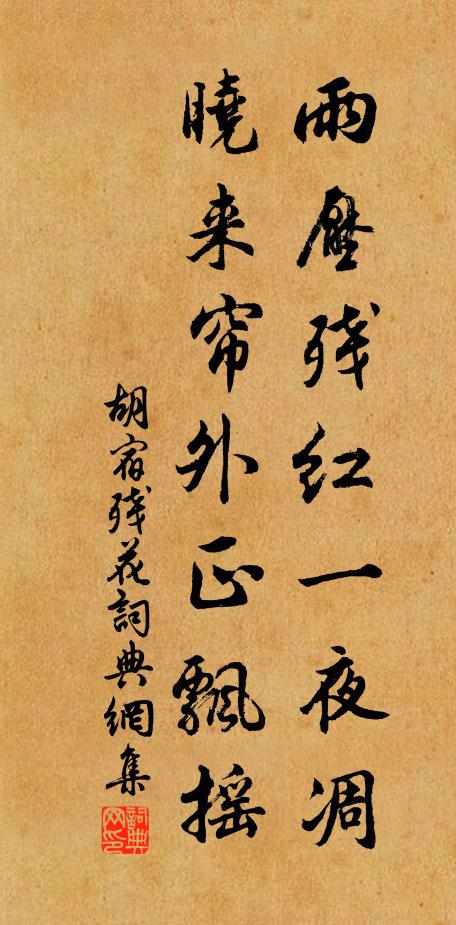 雨壓残红一夜凋
曉来帘外正飄摇
胡宿残花詞典網集
詞典网印